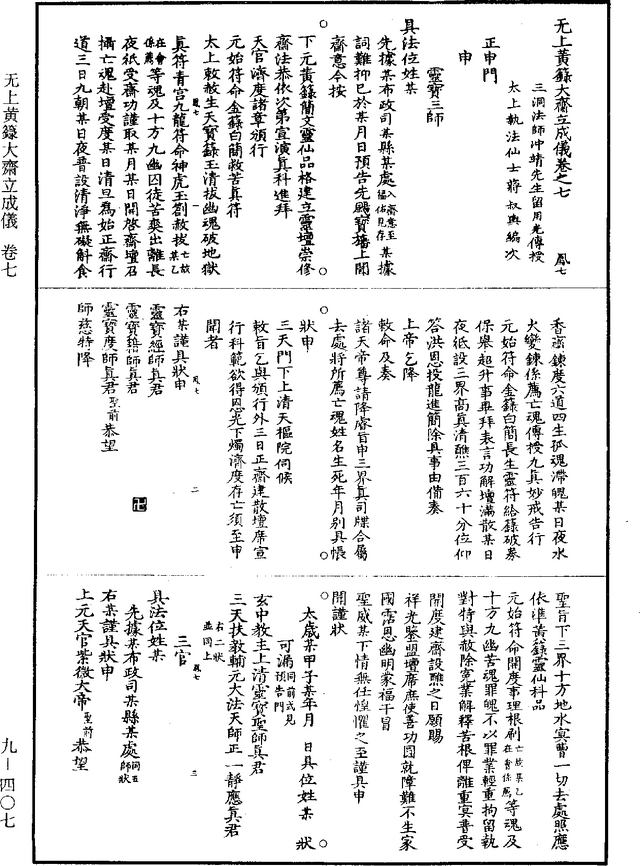 无上黃籙大齋立成儀卷之七　鳳七
三洞法師沖靖先生留用光傳授
太上執法仙士蔣叔輿編次
正申門
申
靈寶三師
具法位姓某
先據某布政司某縣某處入齋意至臨佑見存某據
詞難抑已於某月日預告先颺寶旛上聞
齋意令按
下元黃籙簡文靈仙品格建立靈壇崇修
齋法恭依次第宣演真科進拜
天官濟度諸章頒行
元始符命金籙白簡救苦真符
太上敕救生天寶籙玉清拔幽魂破地獄
真符青宮九龍符命神虎玉劄救拔亡故某乙
在會係薦等魂及十方九幽囚徒苦爽出離長
夜祇受齋功謹取某月某日開啓齋壇召
攝亡魂赴壇受度某日清旦為始正齋行
道三日九朝某日夜普設清淨無礙斛食
香密鍊度六道四生孤魂滯魄某日夜水
火鍊係薦亡魂傳授九真妙戒告行
元始符命金籙白簡長生靈符給籙破券
保舉超升事畢拜表言功解壇滿散某日
夜祇設三界高真清醮三百六十分位仰
答洪恩投龍進簡除具事由備奏
上帝乞降
敕命及奏
諸天帝尊請降睿旨申三界真司牒合屬
去處將所薦亡魂姓名生死年月別具帳
狀申
三天門下上清天樞院伺候
敕旨乞與頒行外三日正齋建散壇席宣
行科範欲得恩光下燭濟度存亡須至申
聞者
右某謹具狀申
靈寶經師真君
靈寶籍師真君
靈寶度師真君聖前恭望
師慈特降
聖旨下三界十方地水冥曹一切去處照應
依準黃籙靈仙科品
元始符命開度事理根刷亡故某乙在會係薦等魂及
十方九幽苦魂罪魄不以罪業輕重拘留執
對特與赦除冤業解釋苦根俾離重冥普受
開度建齋設醮之日願賜
祥光鑒盟壇席庶使善功圓就障難不生家
國霑恩幽明家福干冒
聖威某下情無任惶懼之至謹具申
聞謹狀
太歲某甲子某年月　日具位姓某　狀
可漏同前式見預告門
玄中教主上清靈寶聖師真君
三天扶教輔元大法天師正一靜應真君
右二狀並同上
三官
具法位姓某
先據某布政司某縣某處詞同五師狀
右某謹具狀申
上元天官紫微大帝聖前恭望
鳳七　一
鳳七　二
鳳七　三
卍
无上黃籙大齋立成儀　卷七
九—四〇七